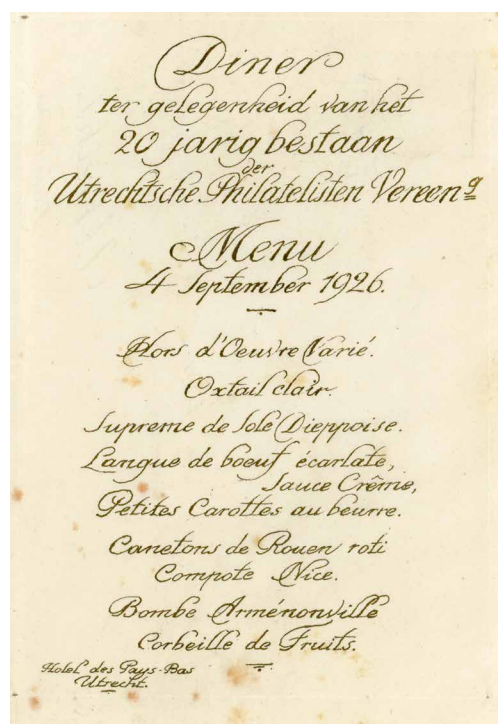 Diner
ter gelegenheid van het
20 jarig bestaan
der
Utrechtsche Philatelisten Vereen<u>g</u>
Menu
4 September 1926.
Hors d'Oeuvre Varié.
Oxtail clair.
Supreme de Sole Dieppoise.
Langue de boeuf écarlate,
Sauce Crême,
Petites Carottes au beurre.
Canetons de Rouen roti
Compote Nice.
Bombe Arménonville
Corbeille de Fruits.
Hotel des Pays-Bas
Utrecht.